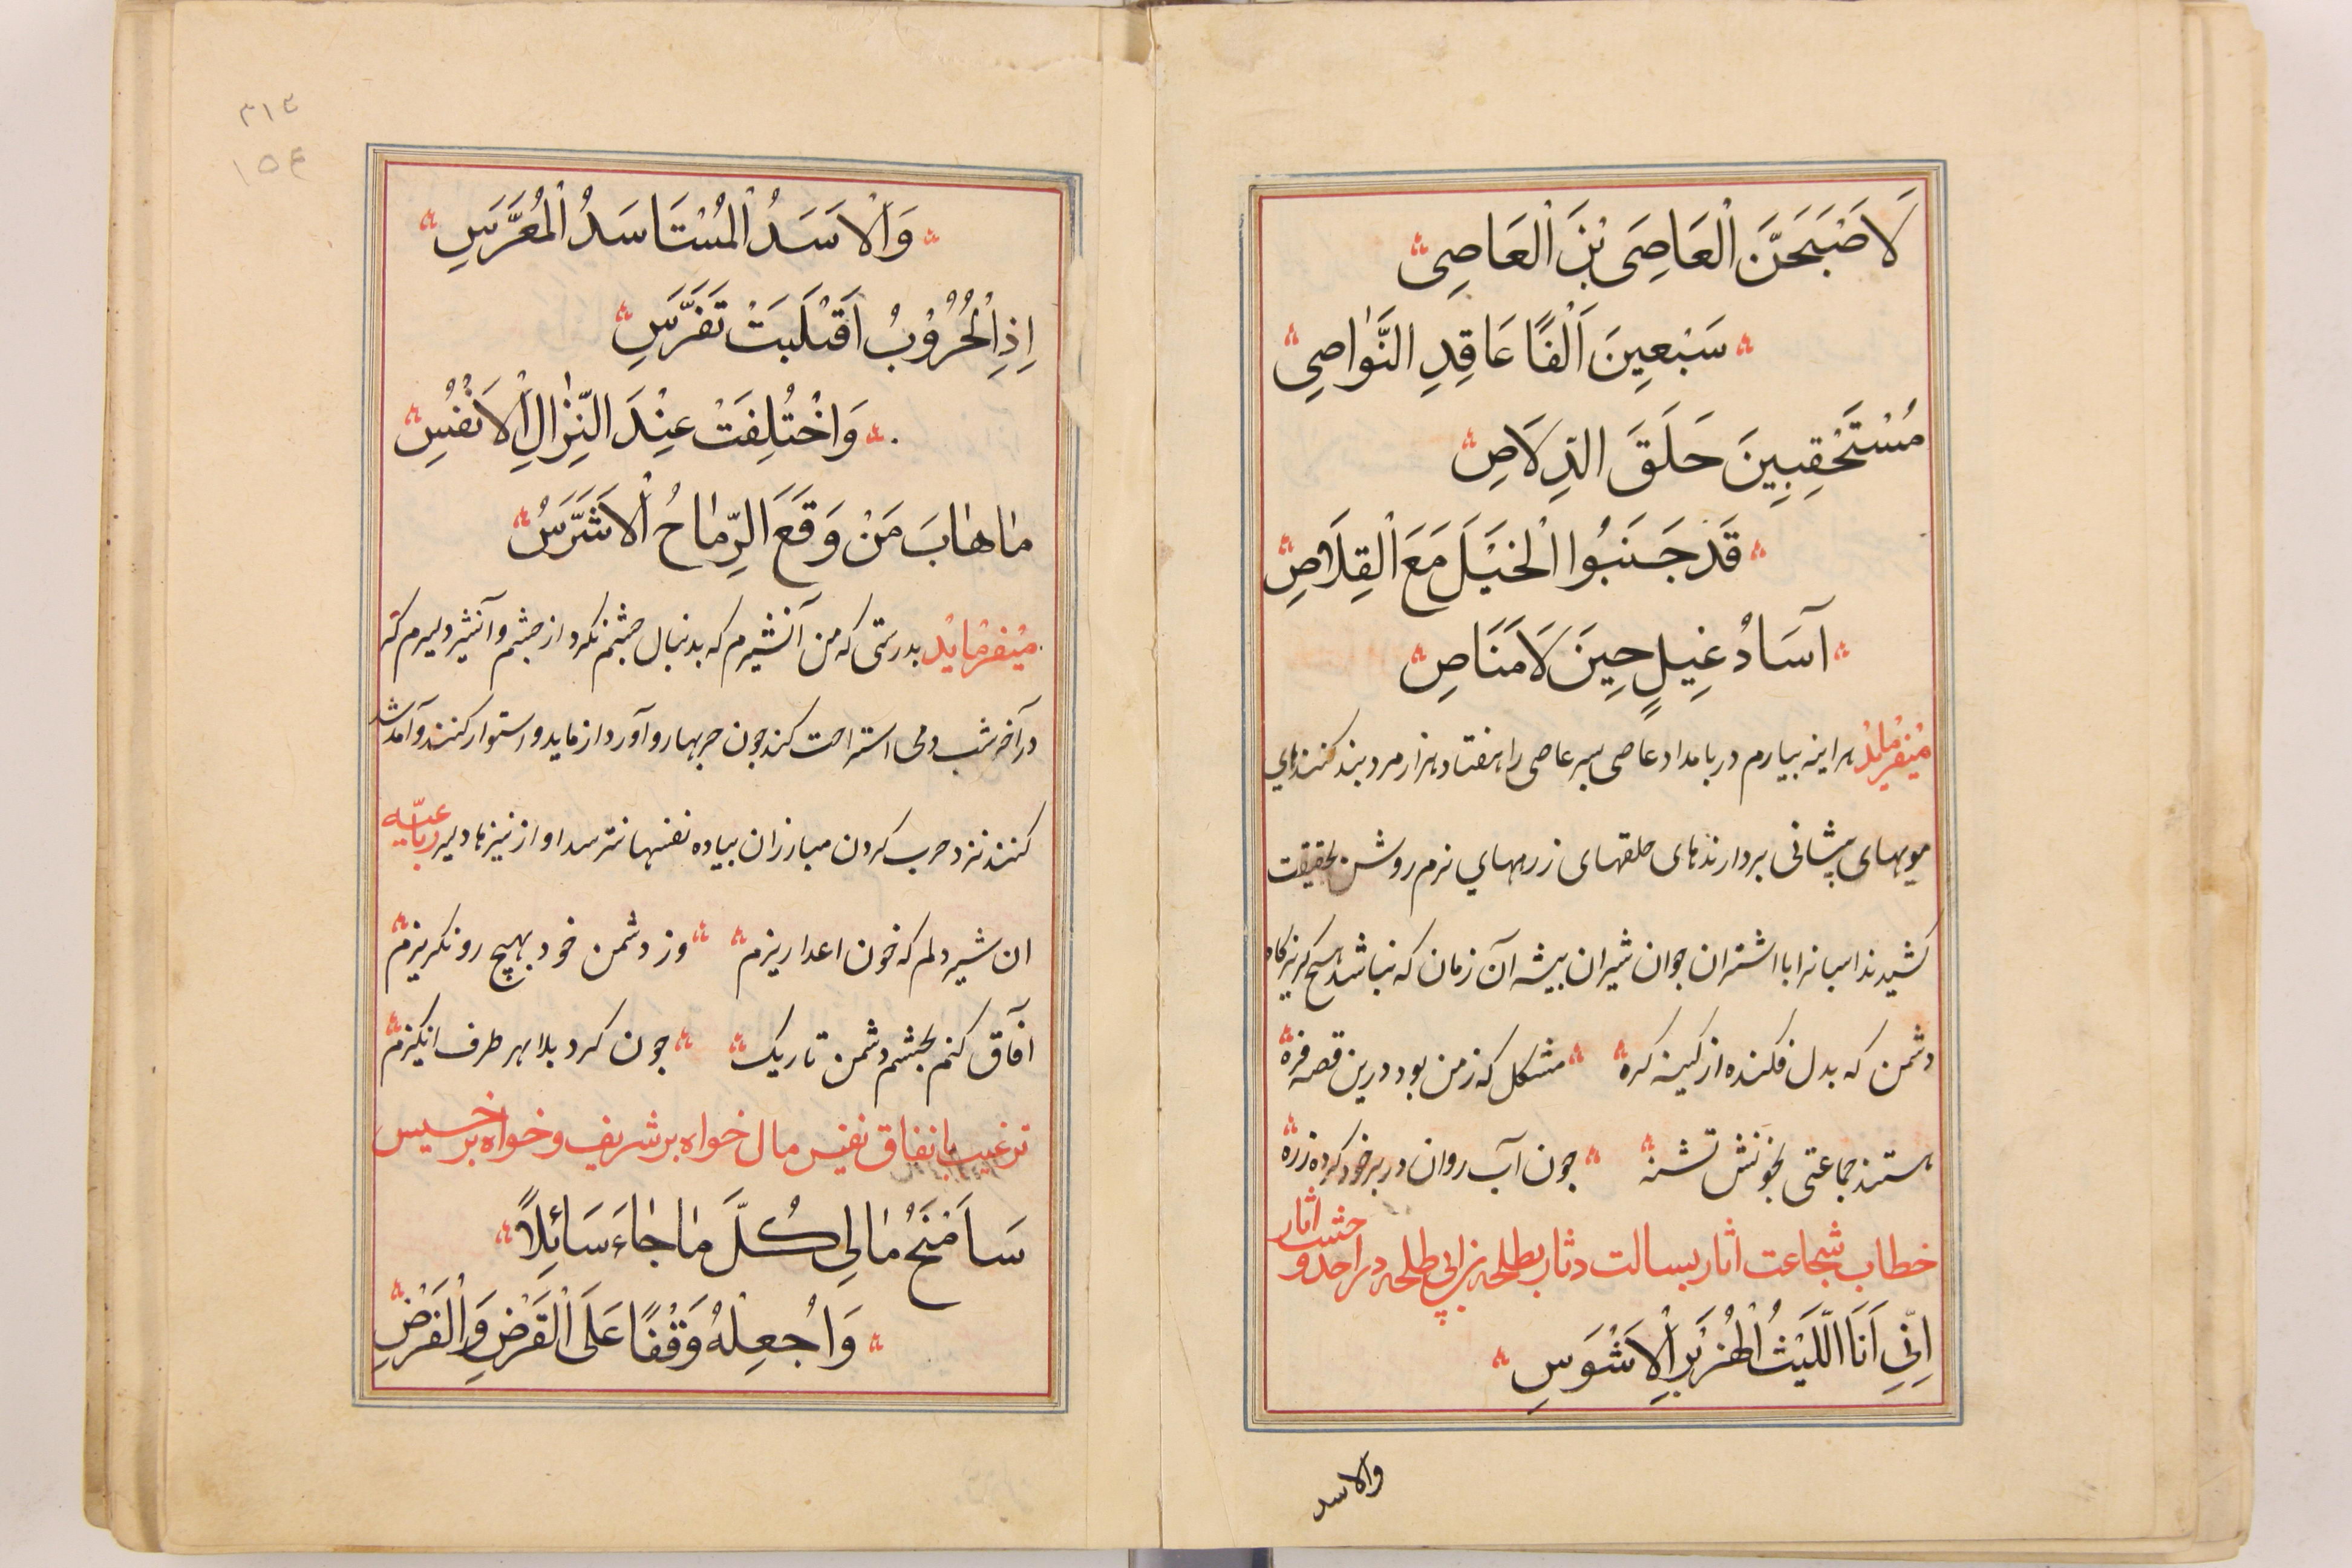 لَاَصْبَحَنَّ الْعَاصِىَ بْنَ الْعَاصِى
سَبْعِينَ اَلْفًا عَاقِدِ النَّوَاصِى
مُسْتَحْقِبِينَ حَلَقَ الدِّلَاصِ
قَدْ جَنَبُوا الْخَيْلَ مَعَ الْقِلَاصِ
آسَادُ غِيلٍ حِينَ لَا مَنَاصِ
میفرماید هراینه بیارم در بامداد عاصی پسر عاصی را هفتاد هزار مرد بند کنندهای
مویهای پیشانی بردارندهای حلقهای زرههای نرم روشن بحقیقت
کشیدند اسبانرا با اشتران جوان شیران بیشه آن زمان که نباشد هیچ کریزکاه
دشمن که بدل فکنده از کینه کره مشکل که ز من بود درین قصه فره
هستند جماعتی بخونش تشنه جون آب روان در بر خود کرده زره
خطاب شجاعت اثار بسالت دثار بطلحه بن ابی طلحه در احد و
اِنِّى اَنَا اللَّيْثُ الْهِزَبْرِ الْاَشْوَسِ
والاسد
٣١٣
١٥٤
وَالْاَسَدُ الْمُسْتَاسَدُ الْمُعَرَّسِ
اِذِ الْحُرُوْبُ اَقْبَلَتْ تَفَرَّسِ
وَاخْتُلِفَتْ عِنْدَ النِّزَالِ الْاَنْفُسِ
مَا هَابَ مَنْ وَقَعَ الرِّمَاحُ الْاَشَرَسُ
میفرماید بدرستی که من آنشیرم که بدنبال جشم نکرد از جشم و آنشیر دلیرم که
در آخر شب دمی استراحت کند جون حربها رو آورد ازماید و استوار کنند و آمد شد
کنند نزد حرب کردن مبارزان پیاده نفسها نترسد او از نیزها دلیر رباعیه
ان شیر دلم که خون اعدا ریزم وز دشمن خود بهیچ رو نکریزم
آفاق کنم بجشم دشمن تاریک جون کرد بلا بهر طرف انکیزم
ترغیب بانفاق نفیس مال خواه بر شریف و خواه بر خسیس
سَاَمْنَحُ مَالِى كُلَّ مَا جَاءَ سَائِلًا
وَاُجْعِلْهُ وَقْفًا عَلَى الْقَرْضِ وَالْفَرْضِ